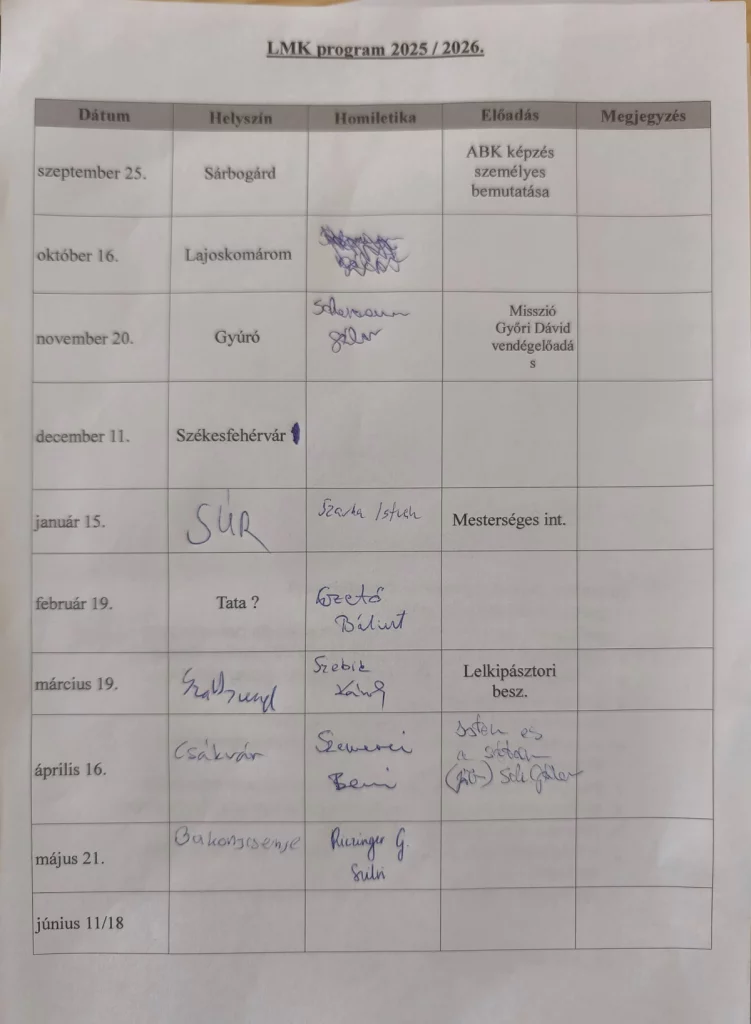 LMK program 2025 / 2026.
Dátum Helyszín Homiletika Előadás Megjegyzés
szeptember 25. Sárbogárd ABK képzés
személyes
bemutatása
október 16. Lajoskomárom
november 20. Gyúró Misszió
Győri Dávid
vendégelőadá
s
december 11. Székesfehérvár
január 15. SÚR Szarka István Mesterséges int.
február 19. Tata ? Bálint
március 19. Szebik Lelkipásztori
besz.
április 16. Csákvár Szemerei Isten és
Beni a
május 21. Bakonycsernye G.
Szilvi
június 11/18